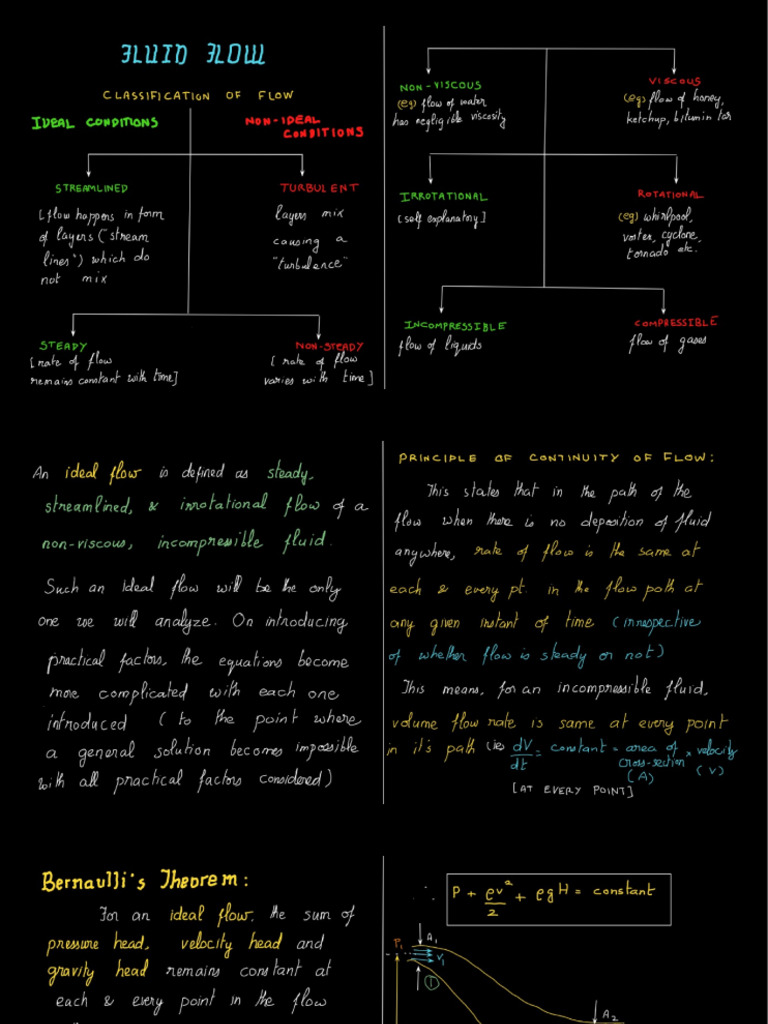 FLUID FLOW
CLASSIFICATION OF FLOW
IDEAL CONDITIONS
NON-IDEAL
CONDITIONS
STREAMLINED
[flow happens in form
of layers ("stream
lines") which do
not mix
TURBULENT
layers mix
causing a
"turbulence"
STEADY
[rate of flow
remains constant with time]
NON-STEADY
[rate of flow
varies with time]
NON-VISCOUS
(eg) flow of water
has negligible viscosity
VISCOUS
(eg) flow of honey,
ketchup, bitumin tar
IRROTATIONAL
[self explanatory]
ROTATIONAL
(eg) whirlpool,
vortex, cyclone,
tornado etc.
INCOMPRESSIBLE
flow of liquids
COMPRESSIBLE
flow of gases
An ideal flow is defined as steady,
streamlined, & irrotational flow of a
non-viscous, incompressible fluid.
Such an ideal flow will be the only
one we will analyze. On introducing
practical factors, the equations become
more complicated with each one
introduced (to the point where
a general solution becomes impossible
with all practical factors considered)
PRINCIPLE OF CONTINUITY OF FLOW:
This states that in the path of the
flow when there is no deposition of fluid
anywhere, rate of flow is the same at
each & every pt. in the flow path at
any given instant of time (irrespective
of whether flow is steady or not)
This means, for an incompressible fluid,
volume flow rate is same at every point
in it's path (ie) dV/dt = constant = area of cross-section (A) × velocity (v)
[AT EVERY POINT]
Bernaulli's Theorem:
For an ideal flow, the sum of
pressure head, velocity head and
gravity head remains constant at
each & every point in the flow
∴ P + ρv²/2 + ρgH = constant
P₁
A₁
v₁
①
A₂